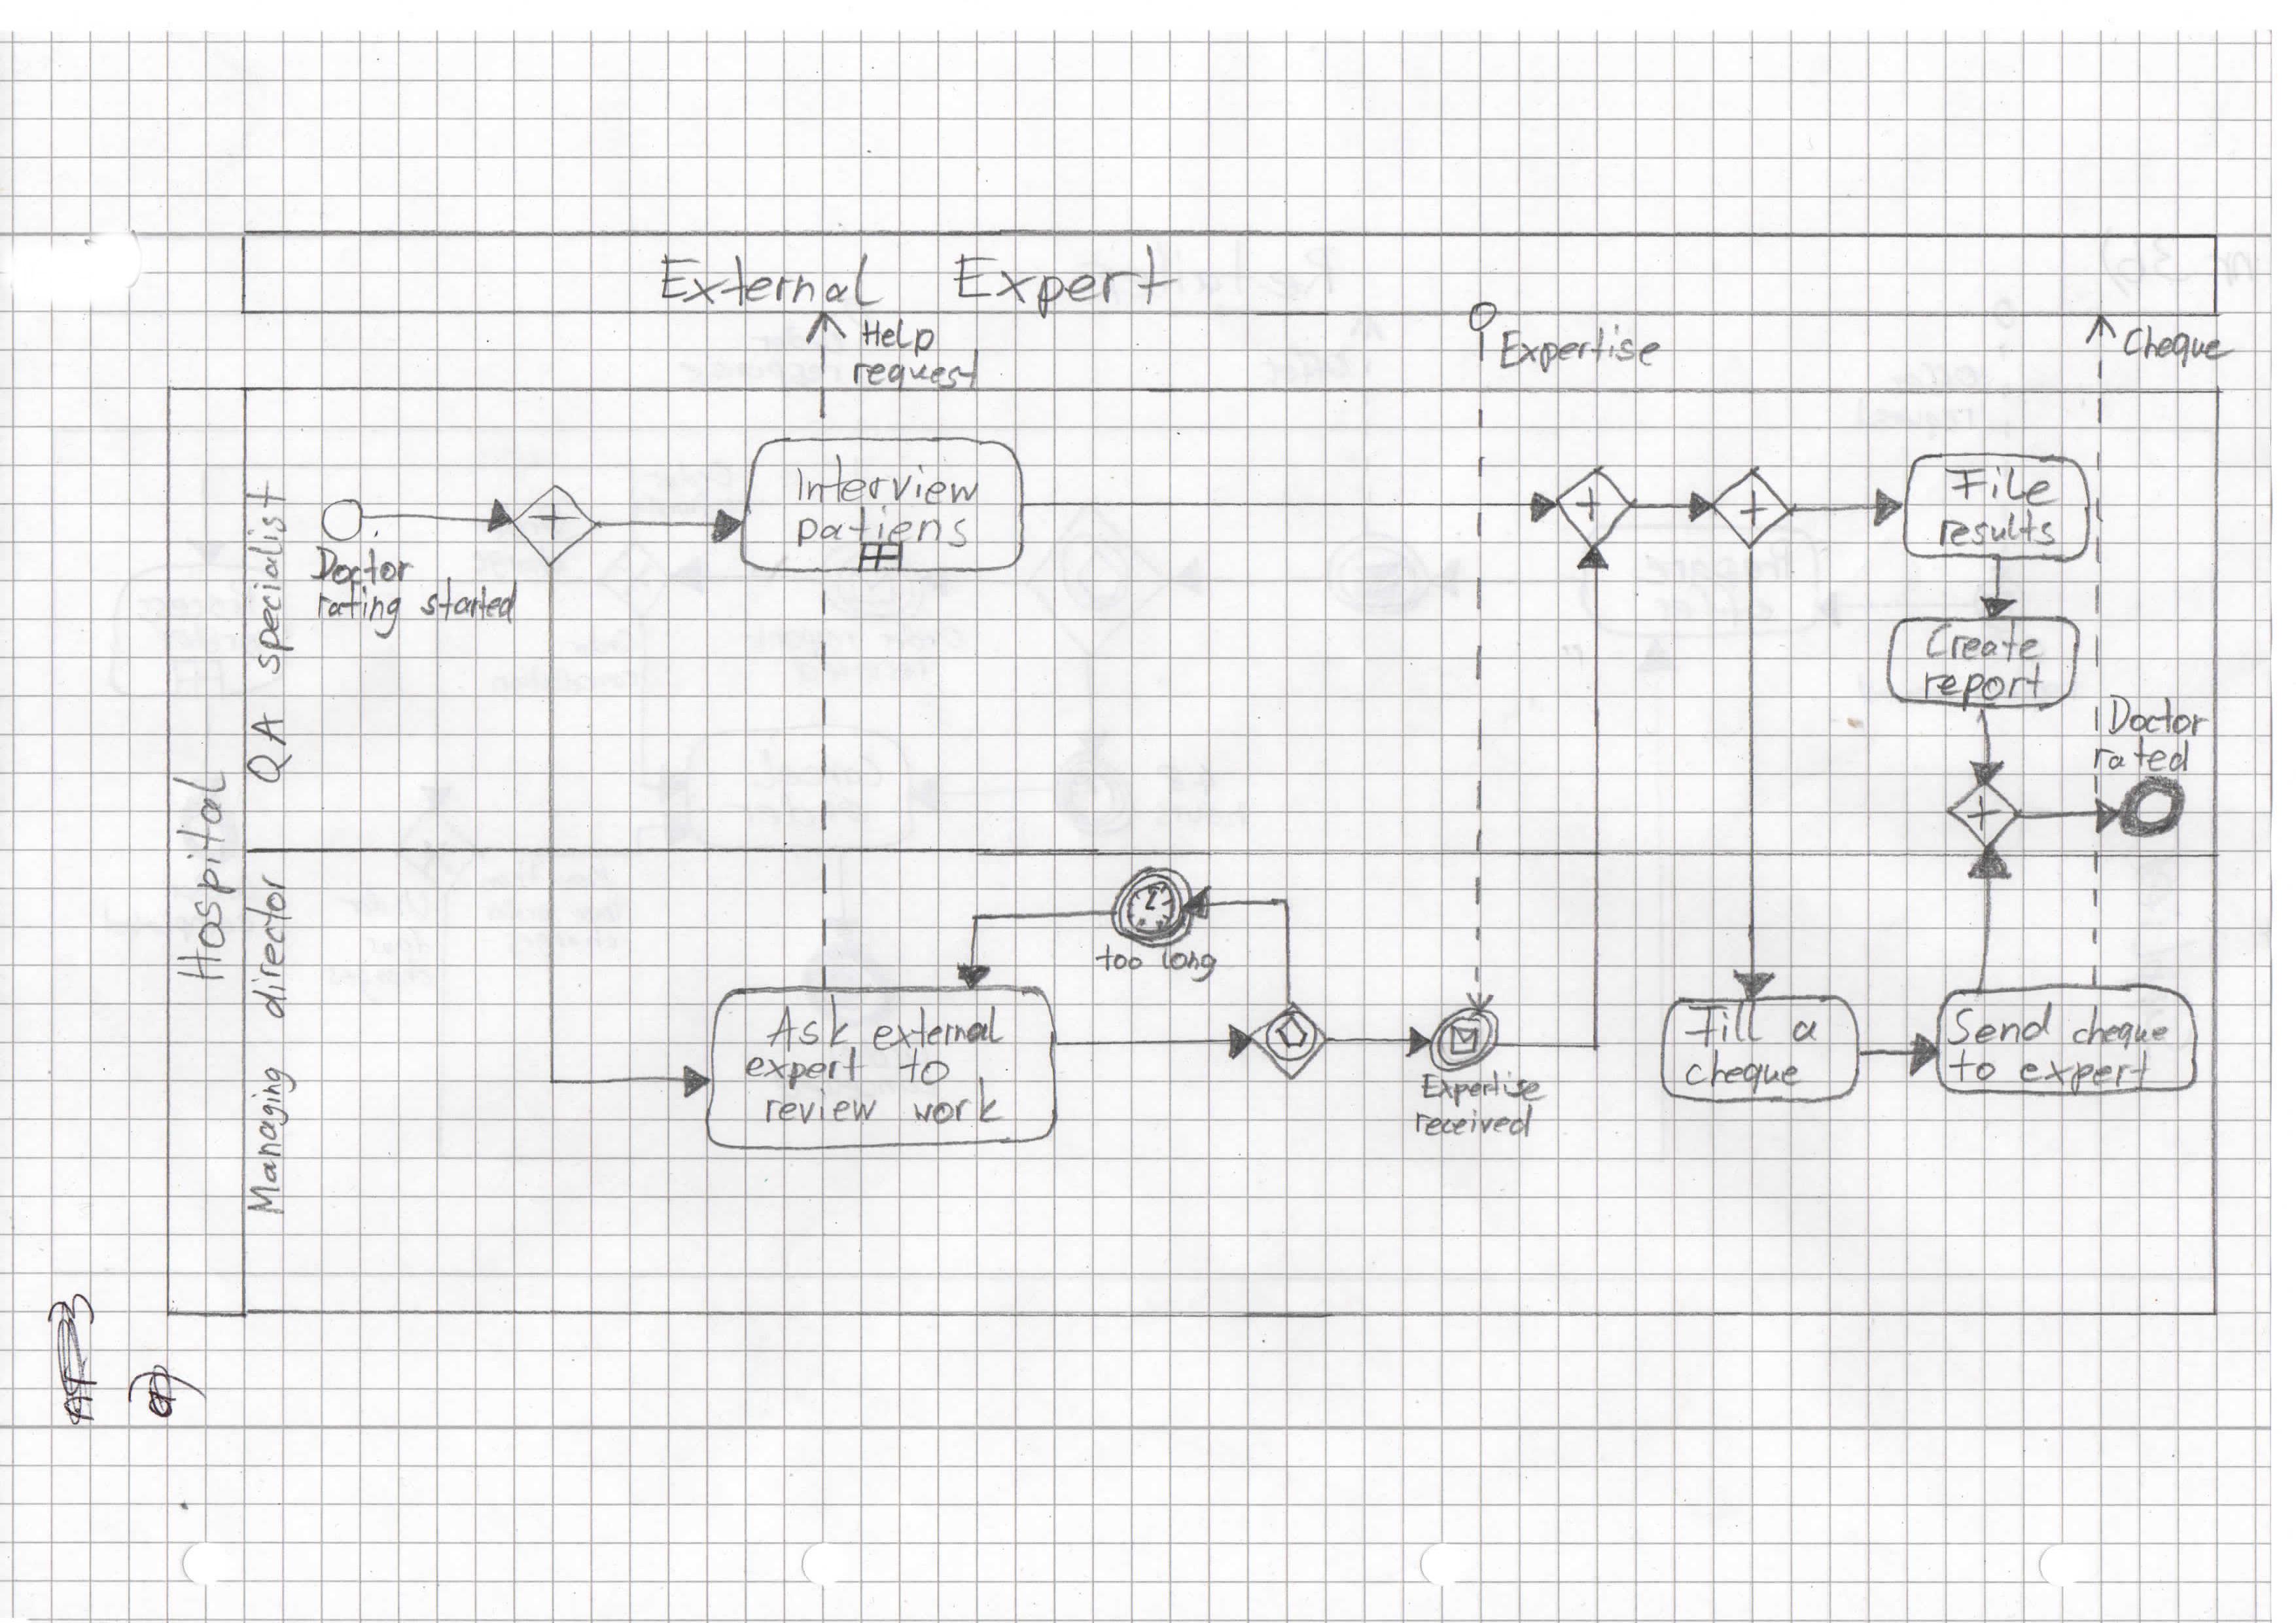 External Expert
Help
request
Expertise
Cheque
Hospital
QA specialist
Managing director
Doctor
rating started
Interview
patiens
File
results
Create
report
Doctor
rated
too long
Ask external
expert to
review work
Expertise
received
Fill a
cheque
Send cheque
to expert